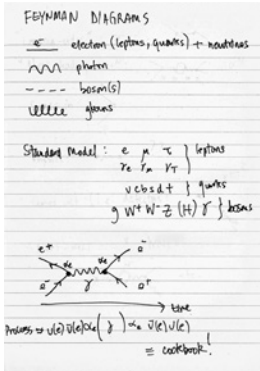 FEYNMAN DIAGRAMS
e⁻ electron (leptons, quarks) + neutrinos
photon
boson(s)
gluons
Standard Model: e μ τ } leptons
γe γμ γτ
u c b s d t } quarks
g W+ W- Z (H) γ } bosons
e+ e⁻
αe αe
γ
e⁻ e+
time
Process ≈ ū(e) αe (γ) αe
≡ cookbook!